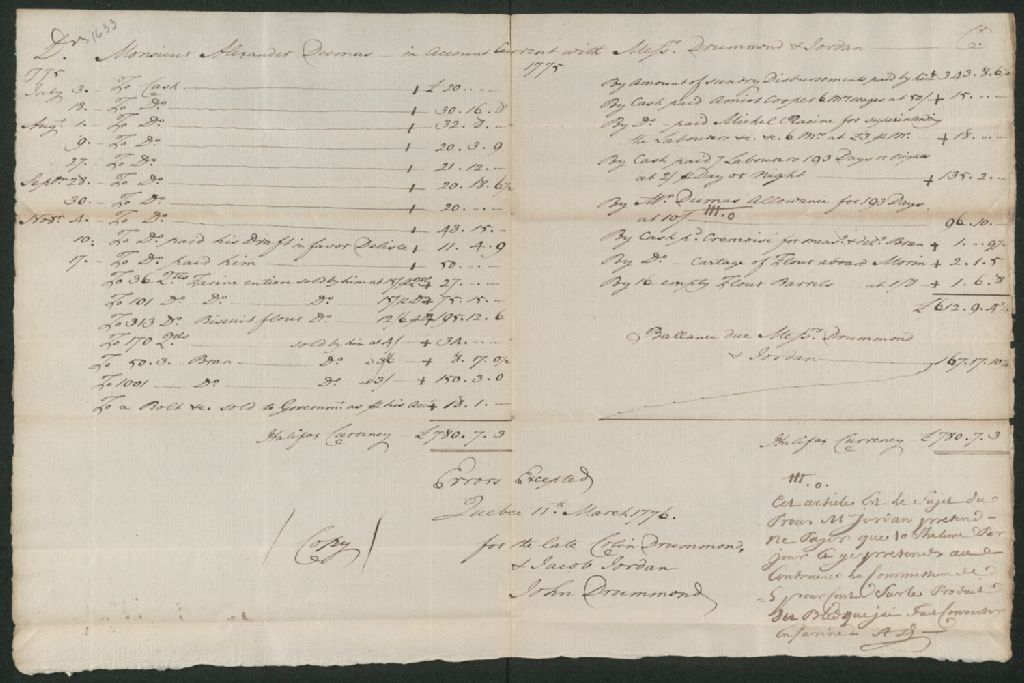 1633
Dr. Monsieur Alexander Dumas in Account Current with Messrs. Drummond & Jordan Cr.
1775
July 3. To Cash £ 20. ...
18. To Do 30. 16. 8
Augt. 1. To Do 32. 8. -
9. To Do 20. 3. 9
27. To Do 21. 12. -
Septr. 28. To Do 20. 18. 6½
30. To Do 20. ...
Novr. 4. To Do 43. 15. -
10: To Do paid his Draft in favor Delisle 11. 4. 9
17. To Do paid him 50. ...
To 36 Qtls Farine entiere sold by him at 15/ 27. ...
To 101 Do. Do. 15/ 75. 15. -
To 313 Do. Biscuit flour Do. 12/6 195. 12. 6
To 170 Qtls sold by him at 4/ 34. ...
To 50.3. Bran Do. at 3/6 8. 17. 9½
To 1001 Do. Do. at 3/ 150. 3. 0
To a Bolt &c. sold to Governmt. as p his Acct 18. 1. -
Halifax Currency £780. 7. 3
1775
By Amount of sundry Disbursements paid by him £ 343. 8. 6½
By Cash paid Amiot Cooper 6 Mos. wages at 50/ 15. ...
By Do. paid Michel Racine for superintending
the Labourers &c. &c. 6 Ms. at £3 p M. 18. ...
By Cash paid 7 Labourers 193 Days or Nights
at 2/ p Day or Night 135. 2. -
By Mr. Dumas Allowance for 193 Days
at 10/ 96. 10. -
By Cash pd. for &
 Bran 1.
By Do. Cartage of Flour aboard Morin 2. 1. 5
By 16 empty Flour Barrels at 1/8 1. 6. 8
£612. 9. 4½
Ballance due Messrs. Drummond
& Jordan 167. 17. 10½
Halifax Currency £780. 7. 3
Errors Excepted
Quebec 11th. March 1776.
for the late Colin Drummond,
& Jacob Jordan
John Drummond
(Copy)
Cet article Est de Sujet du
Proces Mr. Jordan pretend
ne Payer que 10 Shelins Par
jour Et je pretends au
Contraire la Commission de
5 pour Cent Sur le Produit
du Bled que j'ai Fait Convertir
en farine A D